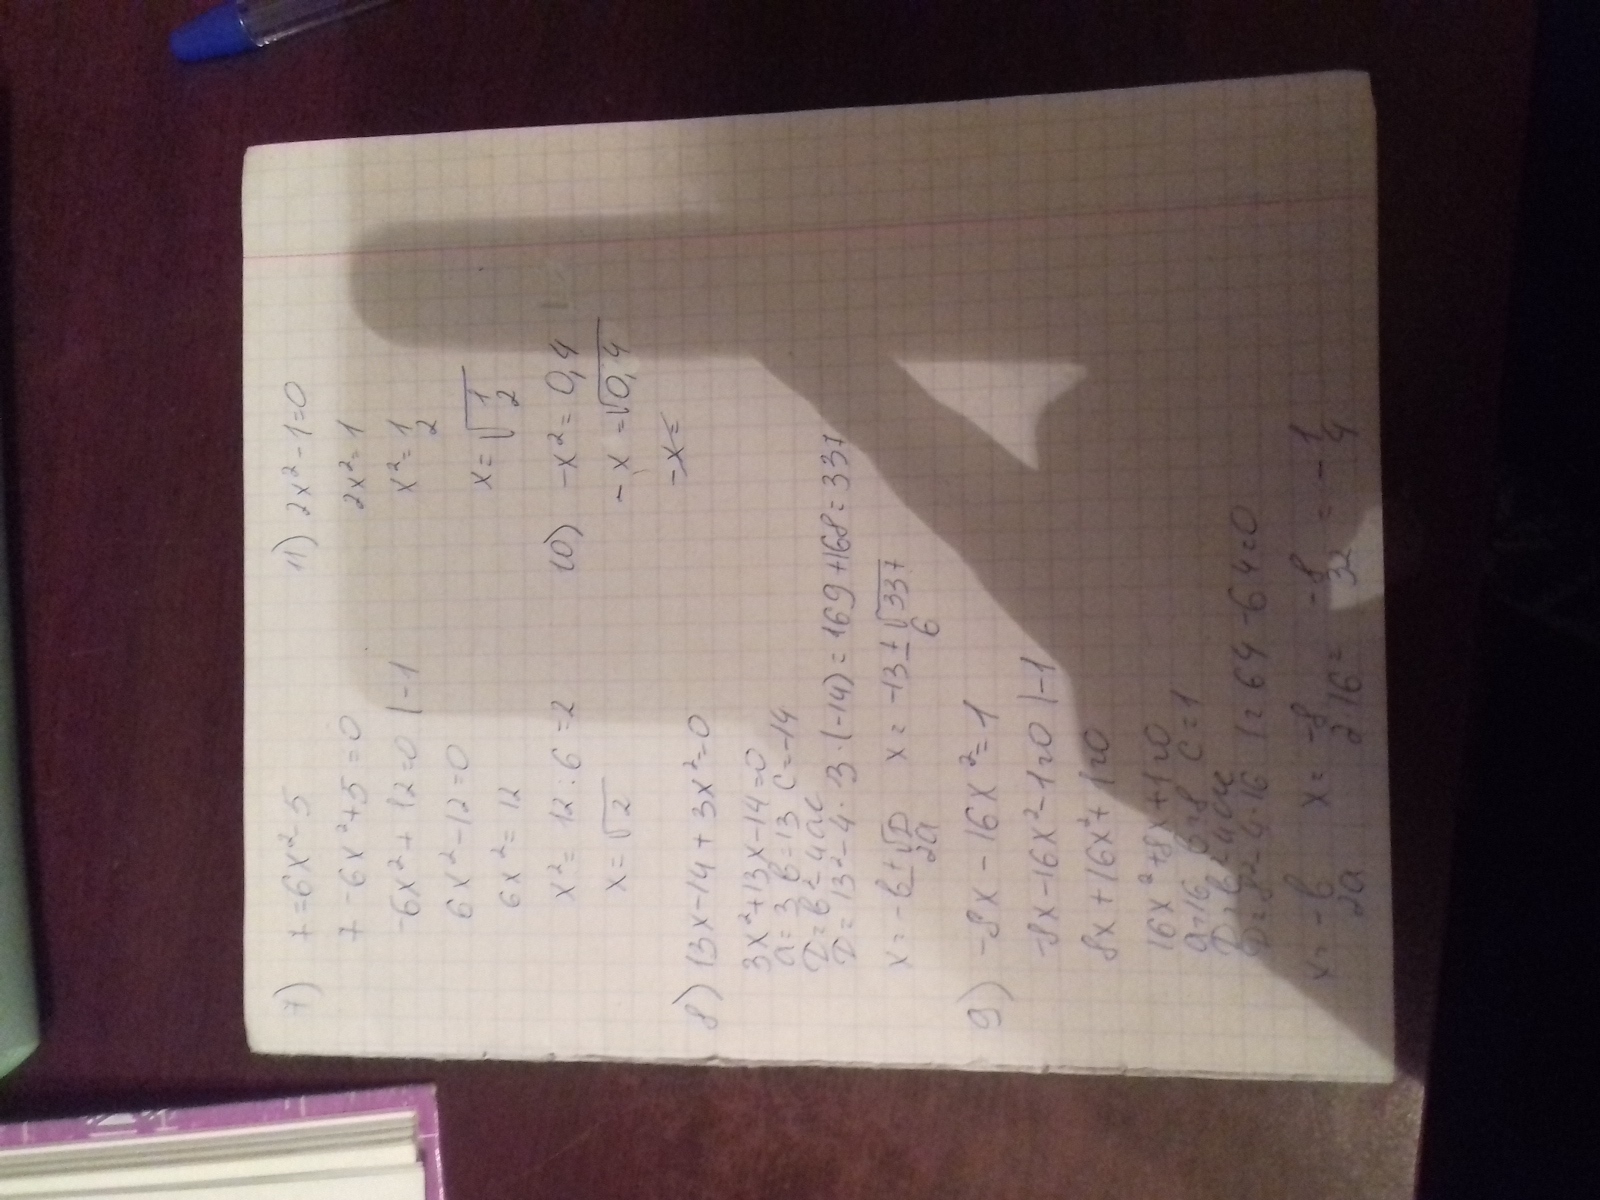 7) 7=6x²-5
7-6x²+5=0
-6x²+12=0 |-1
6x²-12=0
6x²=12
x²=12:6=2
x=√2
8) 13x-14+3x²=0
3x²+13x-14=0
a=3 b=13 c=-14
D=b²-4ac
D=13²-4·3·(-14)=169+168=337
x=-b±√D/2a x=-13±√337/6
9) -8x-16x²=1
-8x-16x²-1=0 |-1
8x+16x²+1=0
16x²+8x+1=0
a=16 b=8 c=1
D=b²-4ac
D=8²-4·16·1=64-64=0
x=-b/2a x=-8/2·16=-8/32=-1/4
11) 2x²-1=0
2x²=1
x²=1/2
x=√1/2
10) -x²=0,4
-x=√0,4
-x=